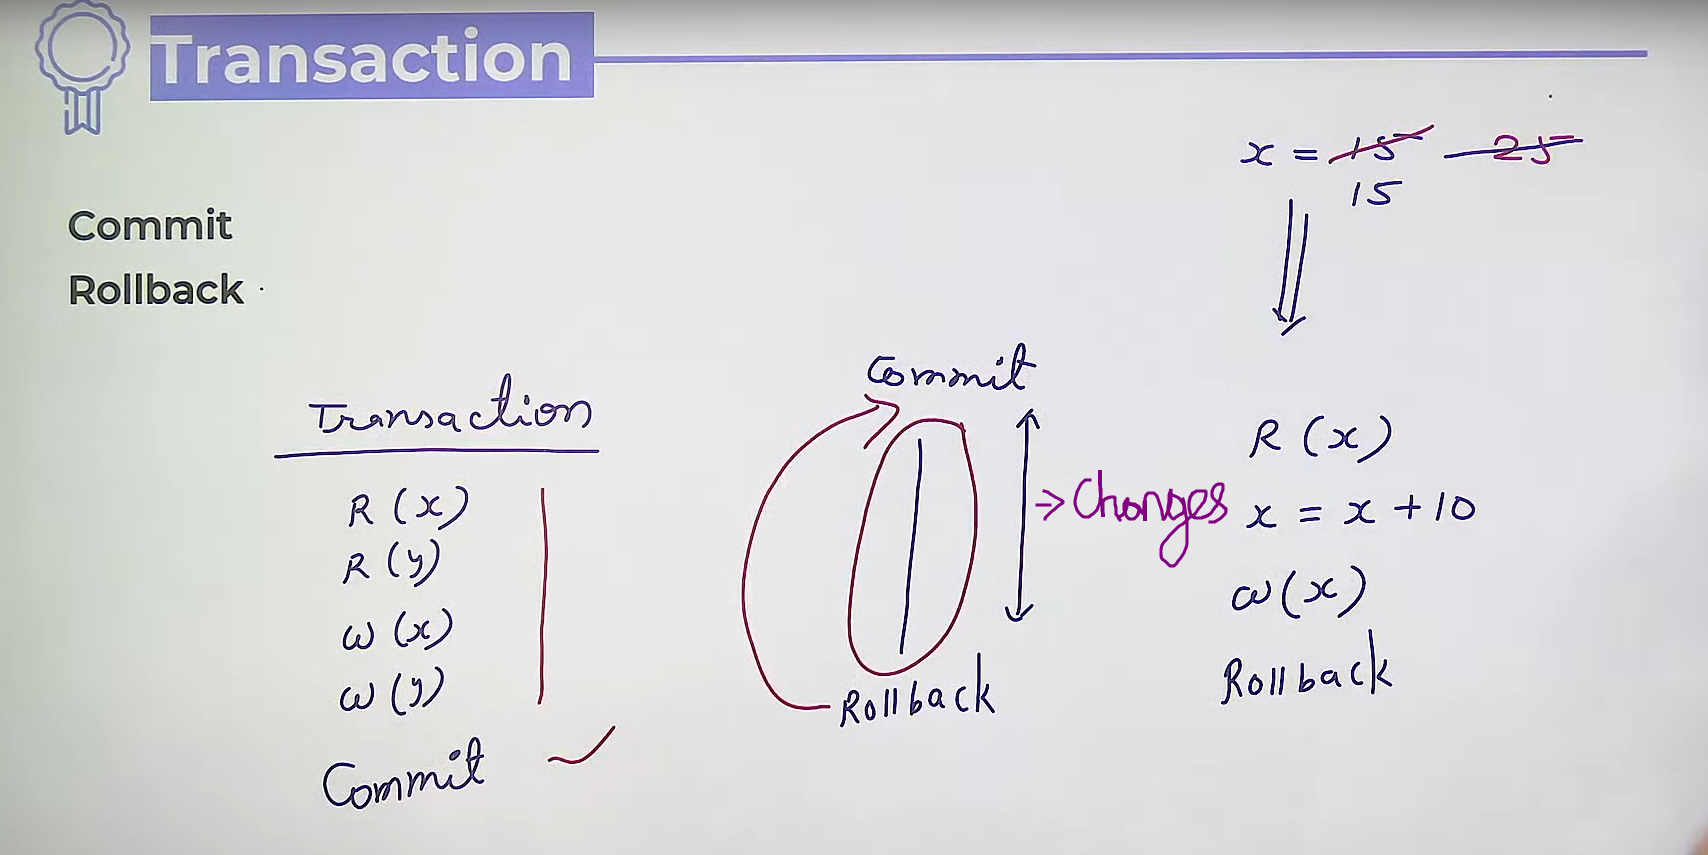 Transaction
x = 15 25
15
Commit
Rollback
Transaction
R (x)
R (y)
W (x)
W (y)
Commit
Commit
→ Changes
Rollback
R (x)
x = x + 10
W (x)
Rollback